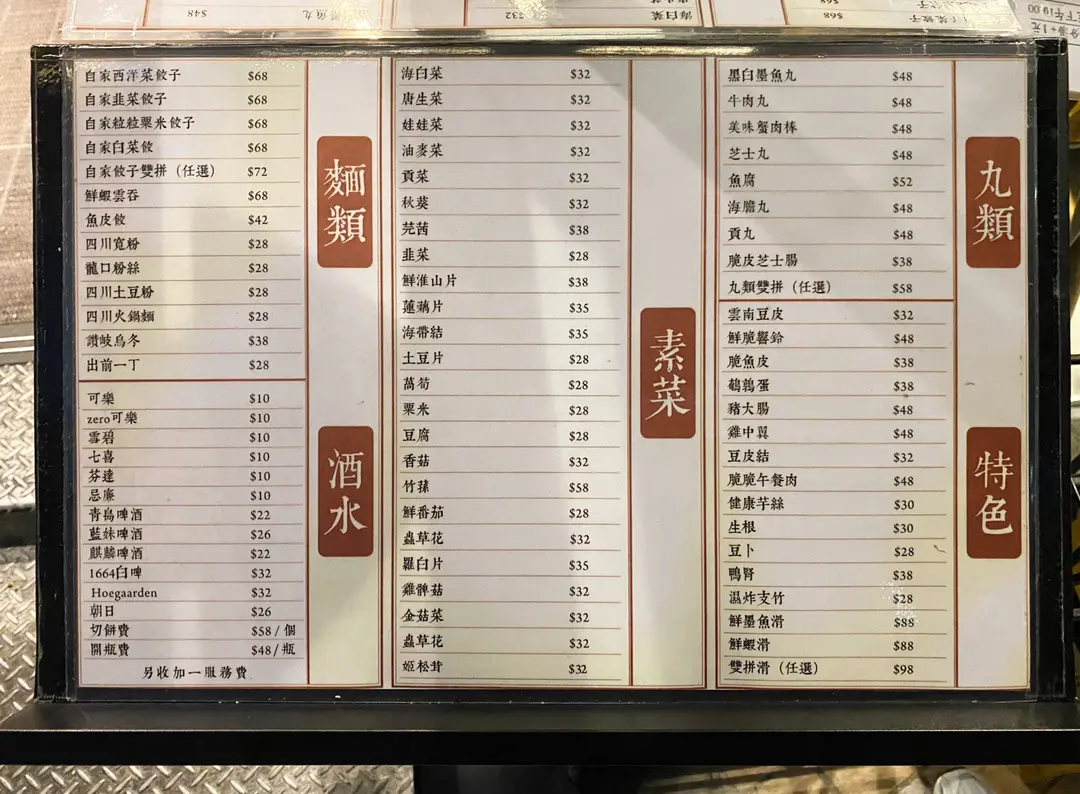 自家西洋菜餃子 $68
自家韭菜餃子 $68
自家粒粒粟米餃子 $68
自家白菜餃 $68
自家餃子雙拼（任選） $72
鮮蝦雲吞 $68
魚皮餃 $42
四川寬粉 $28
龍口粉絲 $28
四川土豆粉 $28
四川火鍋麵 $28
讚岐烏冬 $38
出前一丁 $28
麵類
可樂 $10
zero可樂 $10
雪碧 $10
七喜 $10
芬達 $10
忌廉 $10
青島啤酒 $22
藍妹啤酒 $26
麒麟啤酒 $22
1664白啤 $32
Hoegaarden $32
朝日 $26
切餅費 $58 / 個
開瓶費 $48 / 瓶
另收加一服務費
酒水
海白菜 $32
唐生菜 $32
娃娃菜 $32
油麥菜 $32
貢菜 $32
秋葵 $32
芫茜 $38
韭菜 $28
鮮淮山片 $38
蓮藕片 $35
海帶結 $35
土豆片 $28
萵筍 $28
粟米 $28
豆腐 $28
香菇 $32
竹蓀 $58
鮮番茄 $28
蟲草花 $32
羅白片 $35
雞髀菇 $32
金菇菜 $32
蟲草花 $32
姬松茸 $32
素菜
黑白墨魚丸 $48
牛肉丸 $48
美味蟹肉棒 $48
芝士丸 $48
魚腐 $52
海膽丸 $48
貢丸 $48
脆皮芝士腸 $38
丸類雙拼（任選） $58
丸類
雲南豆皮 $32
鮮脆響鈴 $48
脆魚皮 $38
鵪鶉蛋 $38
豬大腸 $48
雞中翼 $48
豆皮結 $32
脆脆午餐肉 $48
健康芋絲 $30
生根 $30
豆卜 $28
鴨腎 $38
濕炸支竹 $28
鮮墨魚滑 $88
鮮蝦滑 $88
雙拼滑（任選） $98
特色